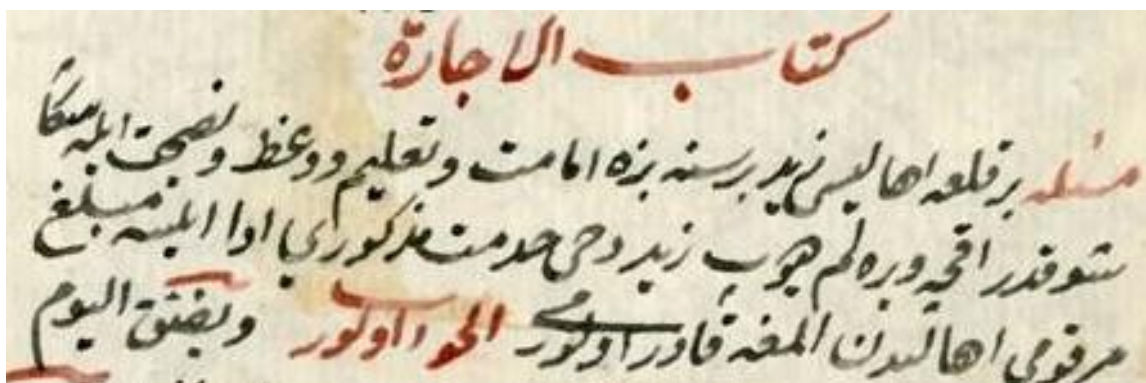 كتاب الاجارة
مسئله بر قلعه اهاليسى زيد بر سنه بزه امامت وتعليم ووعظ ونصيحت ايله سكا
شو قدر اقچه ويره لم ديوب زيد دخى خدمت مذكورايى ادا ايلسه مبلغ
مرقومى اهاليدن المغه قادر اولورمى الجواب اولور وبه يفتى اليوم